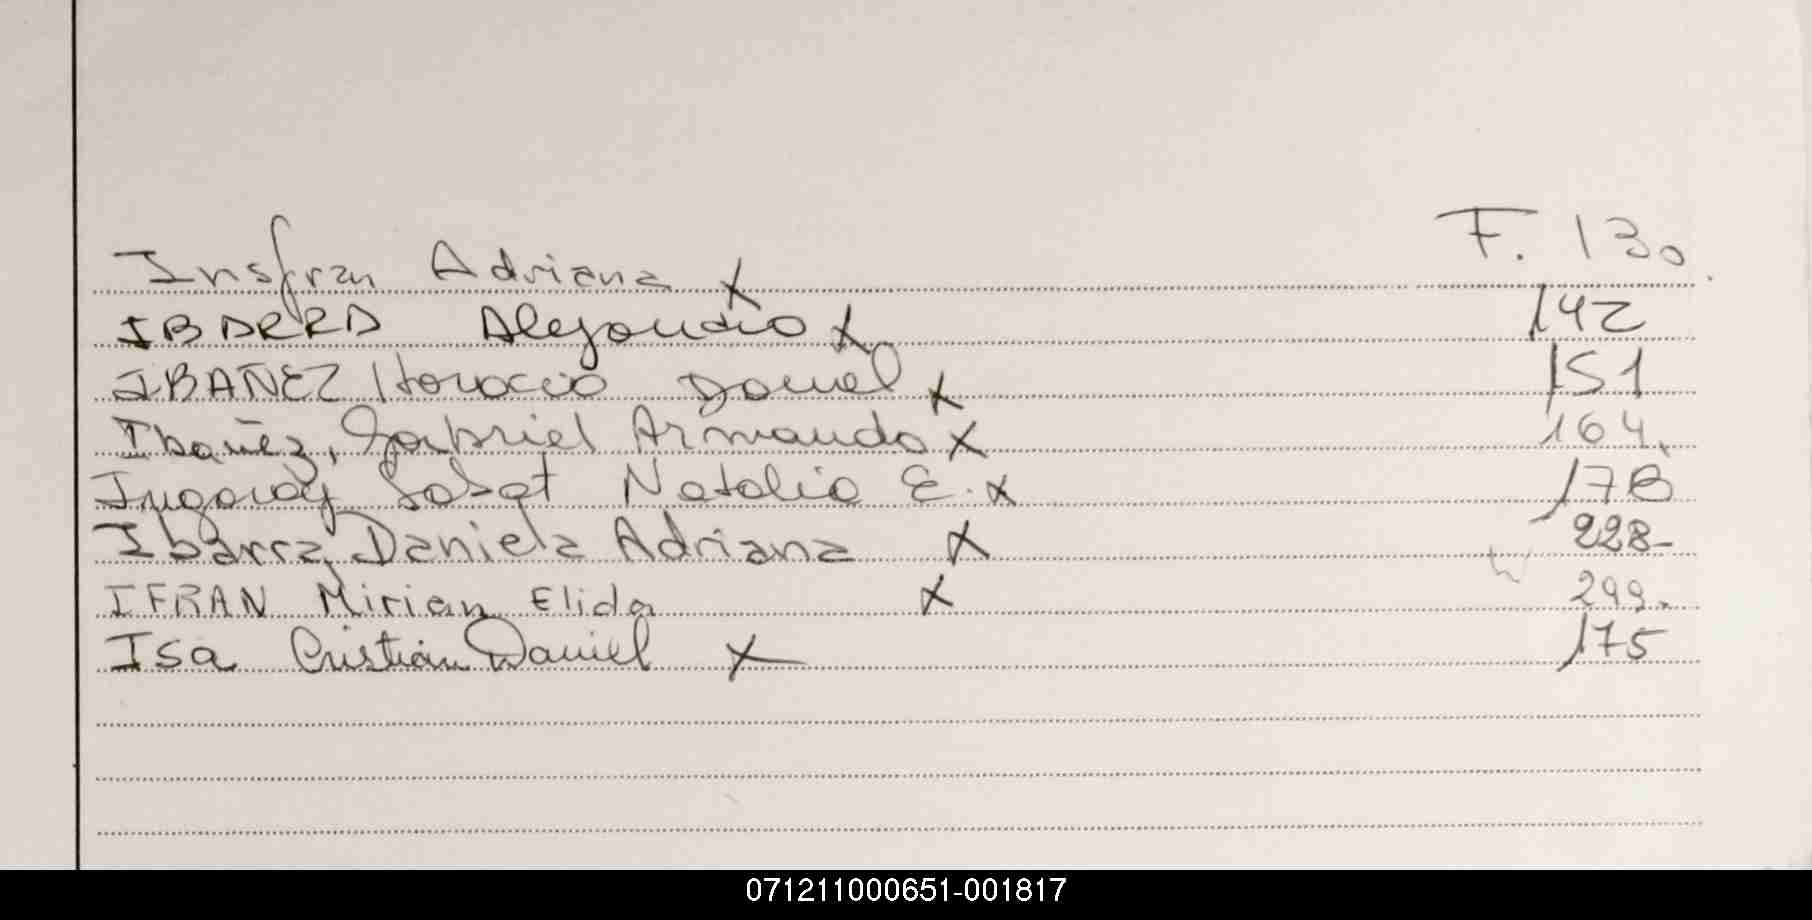 Insfran Adriana x F. 130.
IBARRA Alejandro x 142
IBAÑEZ Horacio Daniel x 151
Ibañez, Gabriel Armando x 164.
Sabat Natalia E. x 178
Ibarra, Daniela Adriana x 228-
IFRAN Mirian Elida x 299.
Isa Cristian Daniel x 175
071211000651-001817